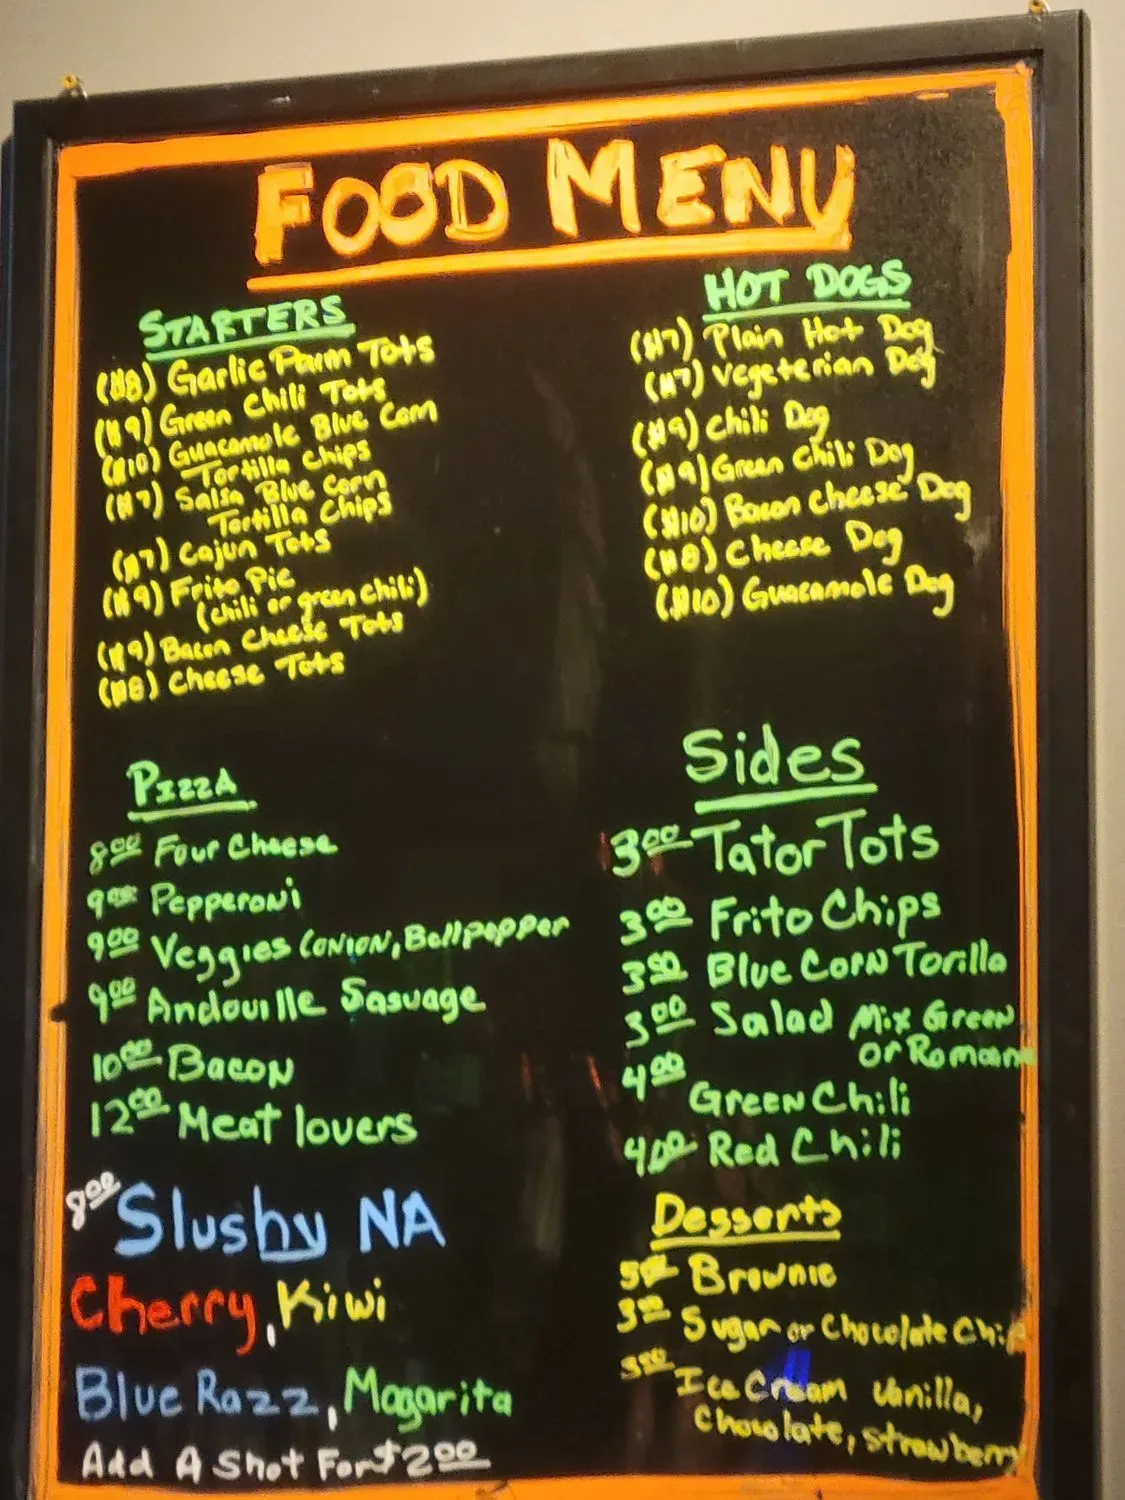 FOOD MENU
STARTERS
($8) Garlic Parm Tots
($9) Green Chili Tots
($10) Guacamole Blue Corn
Tortilla Chips
($7) Salsa Blue Corn
Tortilla Chips
($7) Cajun Tots
($9) Frito Pie
(chili or green chili)
($9) Bacon Cheese Tots
($8) Cheese Tots
HOT DOGS
($7) Plain Hot Dog
($7) Vegeterian Dog
($9) Chili Dog
($9) Green Chili Dog
($10) Bacon Cheese Dog
($8) Cheese Dog
($10) Guacamole Dog
PIZZA
8.00 Four Cheese
9.00 Pepperoni
9.00 Veggies (ONION, Bellpepper
9.00 Andouille Sasuage
10.00 Bacon
12.00 Meat lovers
Sides
3.00 Tator Tots
3.00 Frito Chips
3.00 Blue Corn Torilla
3.00 Salad Mix Green
or Romain
4.00
Green Chili
4.00 Red Chili
8.00 Slushy NA
Cherry, Kiwi
Blue Razz, Magarita
Add A Shot For $2.00
Desserts
5.00 Brownie
3.00 Sugar or Chocolate Chip
3.00 Ice Cream Vanilla,
Chocolate, Strawberry